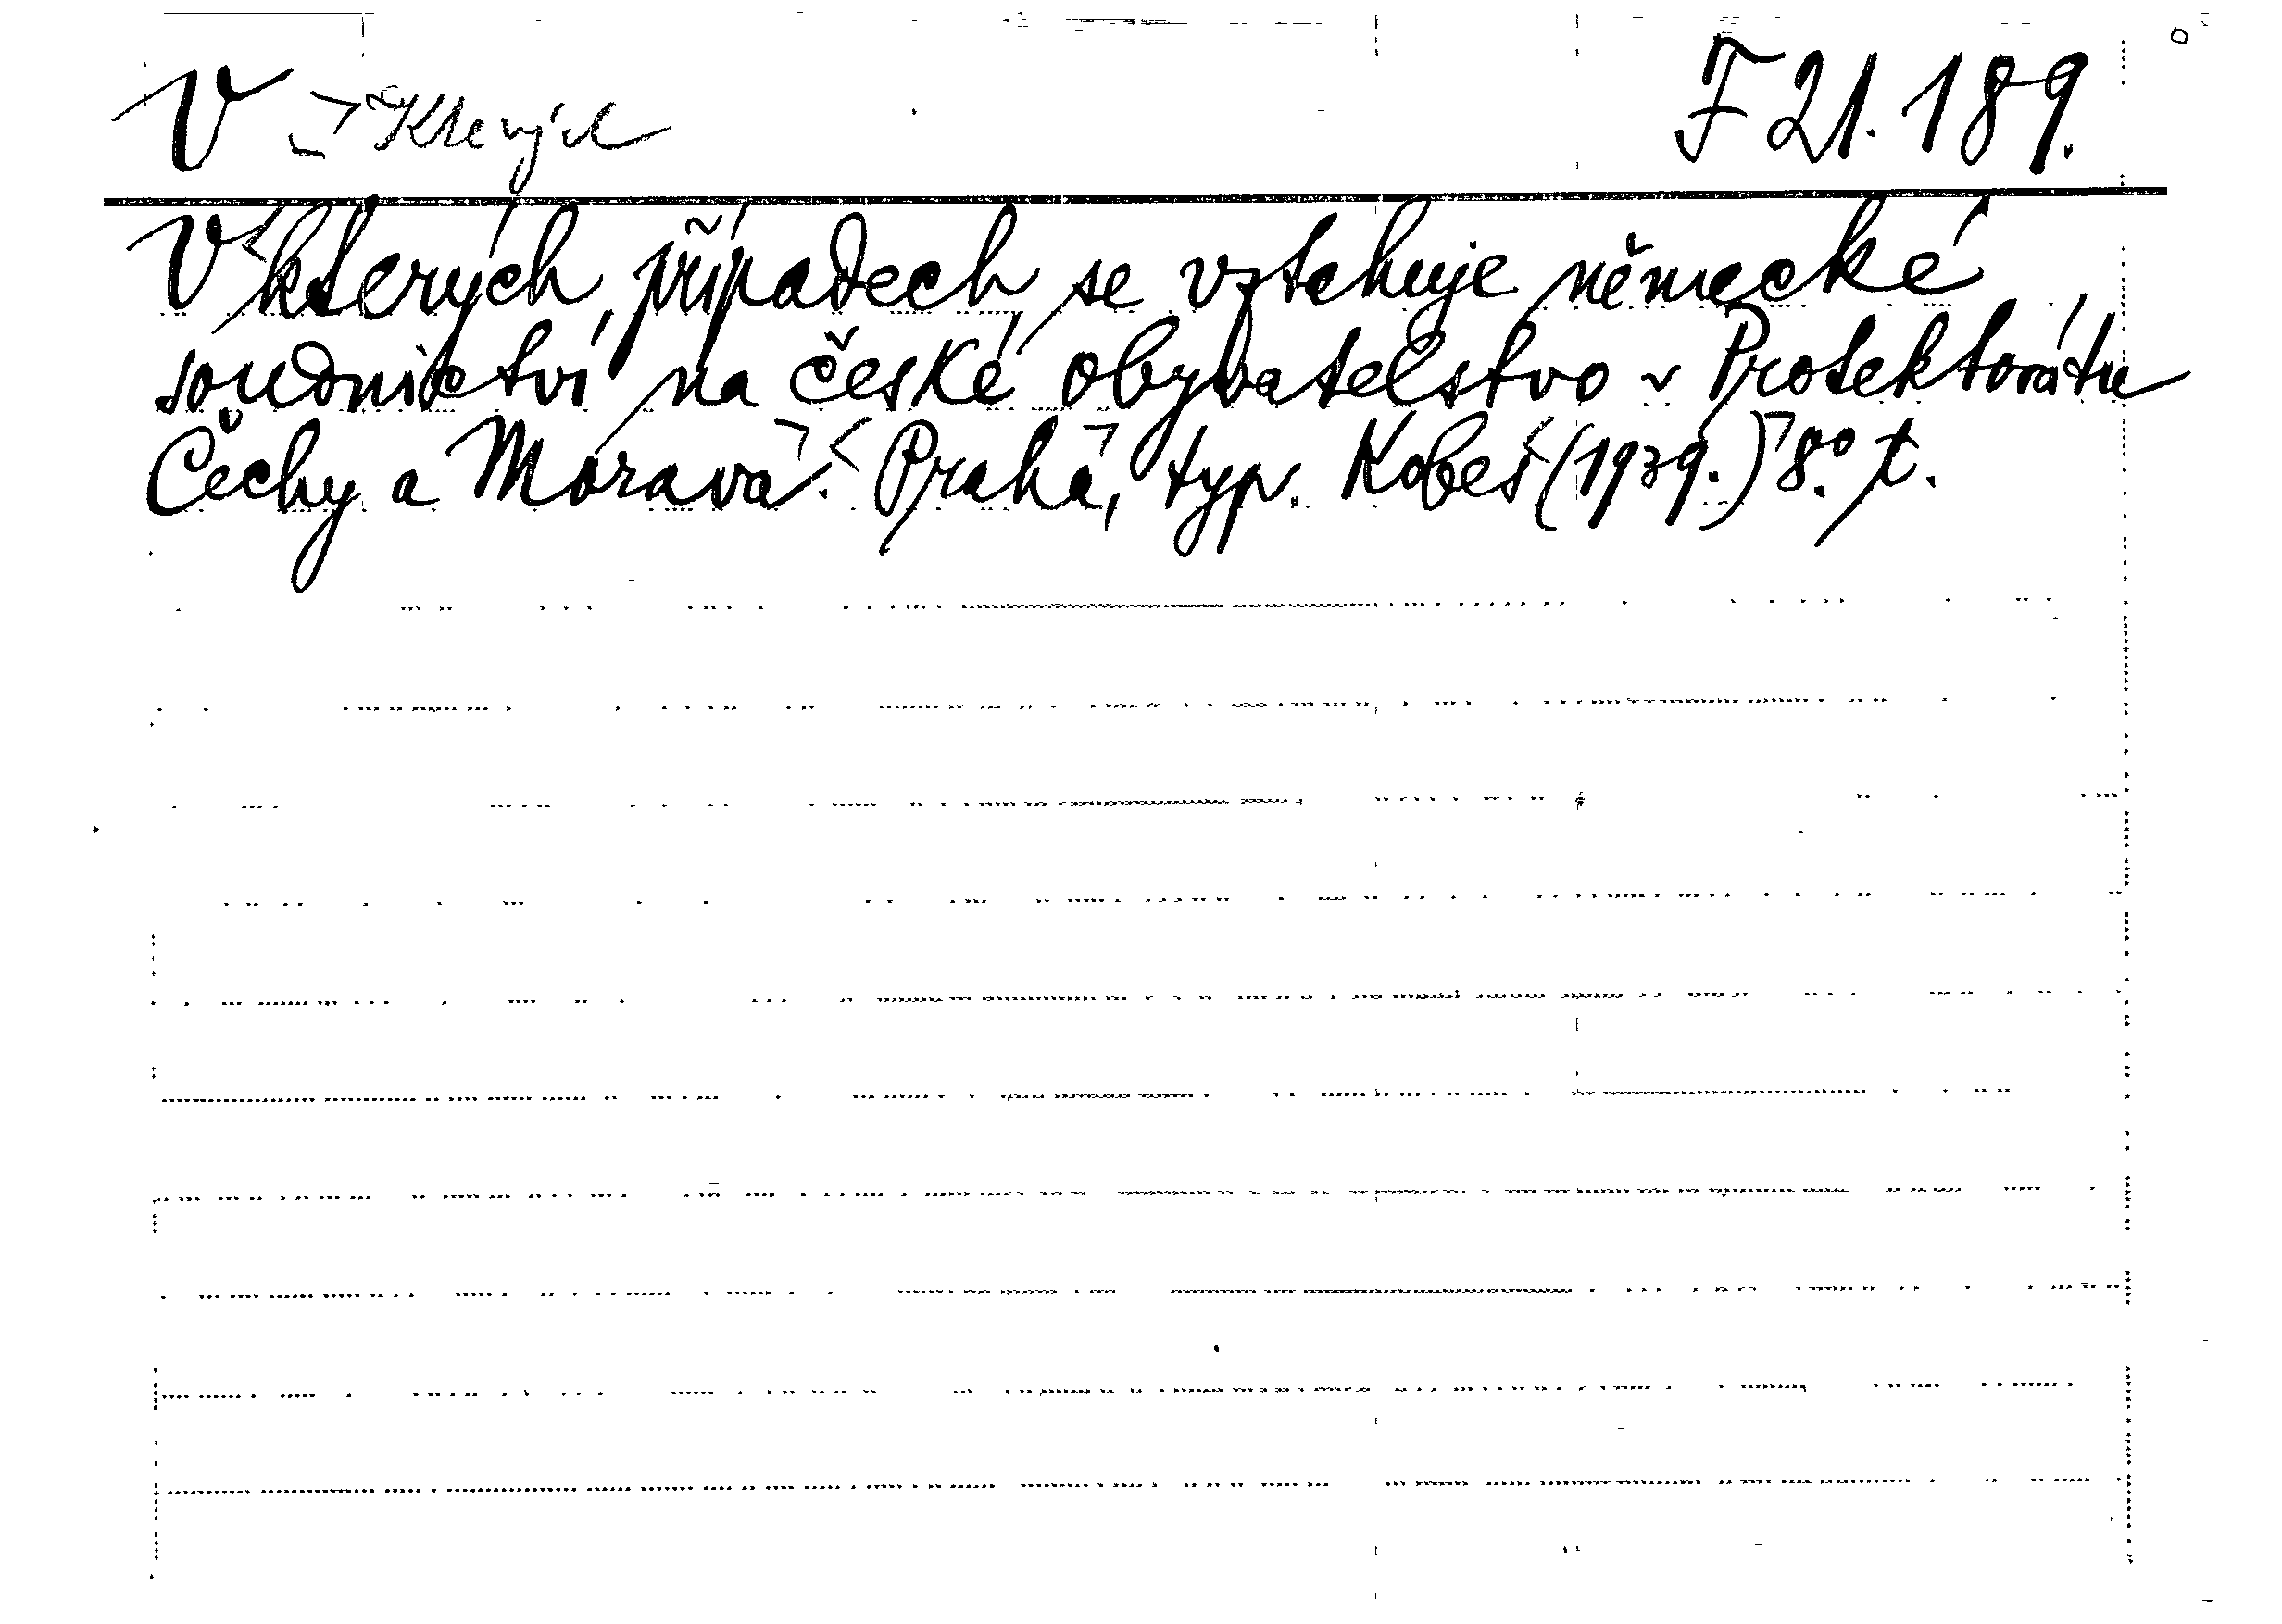 V kterých F 21.189.
V kterých případech se vztahuje německé
soudnictví na české obyvatelstvo v Protektorátu
Čechy a Morava. Praha, typ. Kobeš (1939.) 8° t.